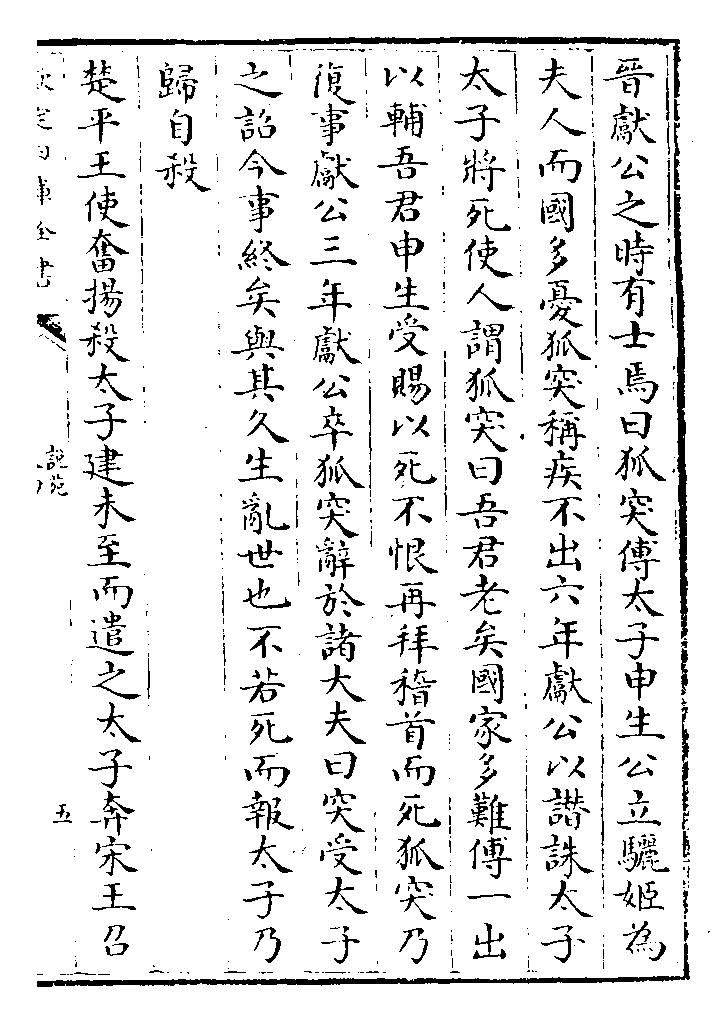 晉獻公之時有士焉曰狐突傅太子申生公立驪姬為
夫人而國多憂狐突稱疾不出六年獻公以譖誅太子
太子將死使人謂狐突曰吾君老矣國家多難傅一出
以輔吾君申生受賜以死不恨再拜稽首而死狐突乃
復事獻公三年獻公卒狐突辭於諸大夫曰突受太子
之詔今事終矣與其久生亂世也不若死而報太子乃
歸自殺
楚平王使奮揚殺太子建未至而遣之太子奔宋王召
欽定四庫全書
說苑
五